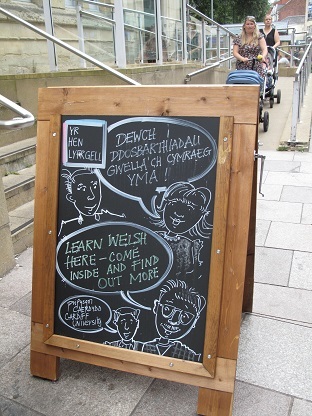 YR
HEN
LYFRGELL
DEWCH I
DDOSBARTHIADAU
GWELLA'CH CYMRAEG
YMA!
LEARN WELSH
HERE - COME
INSIDE AND FIND
OUT MORE
PRIFYSGOL
CAERDYDD
CARDIFF
UNIVERSITY